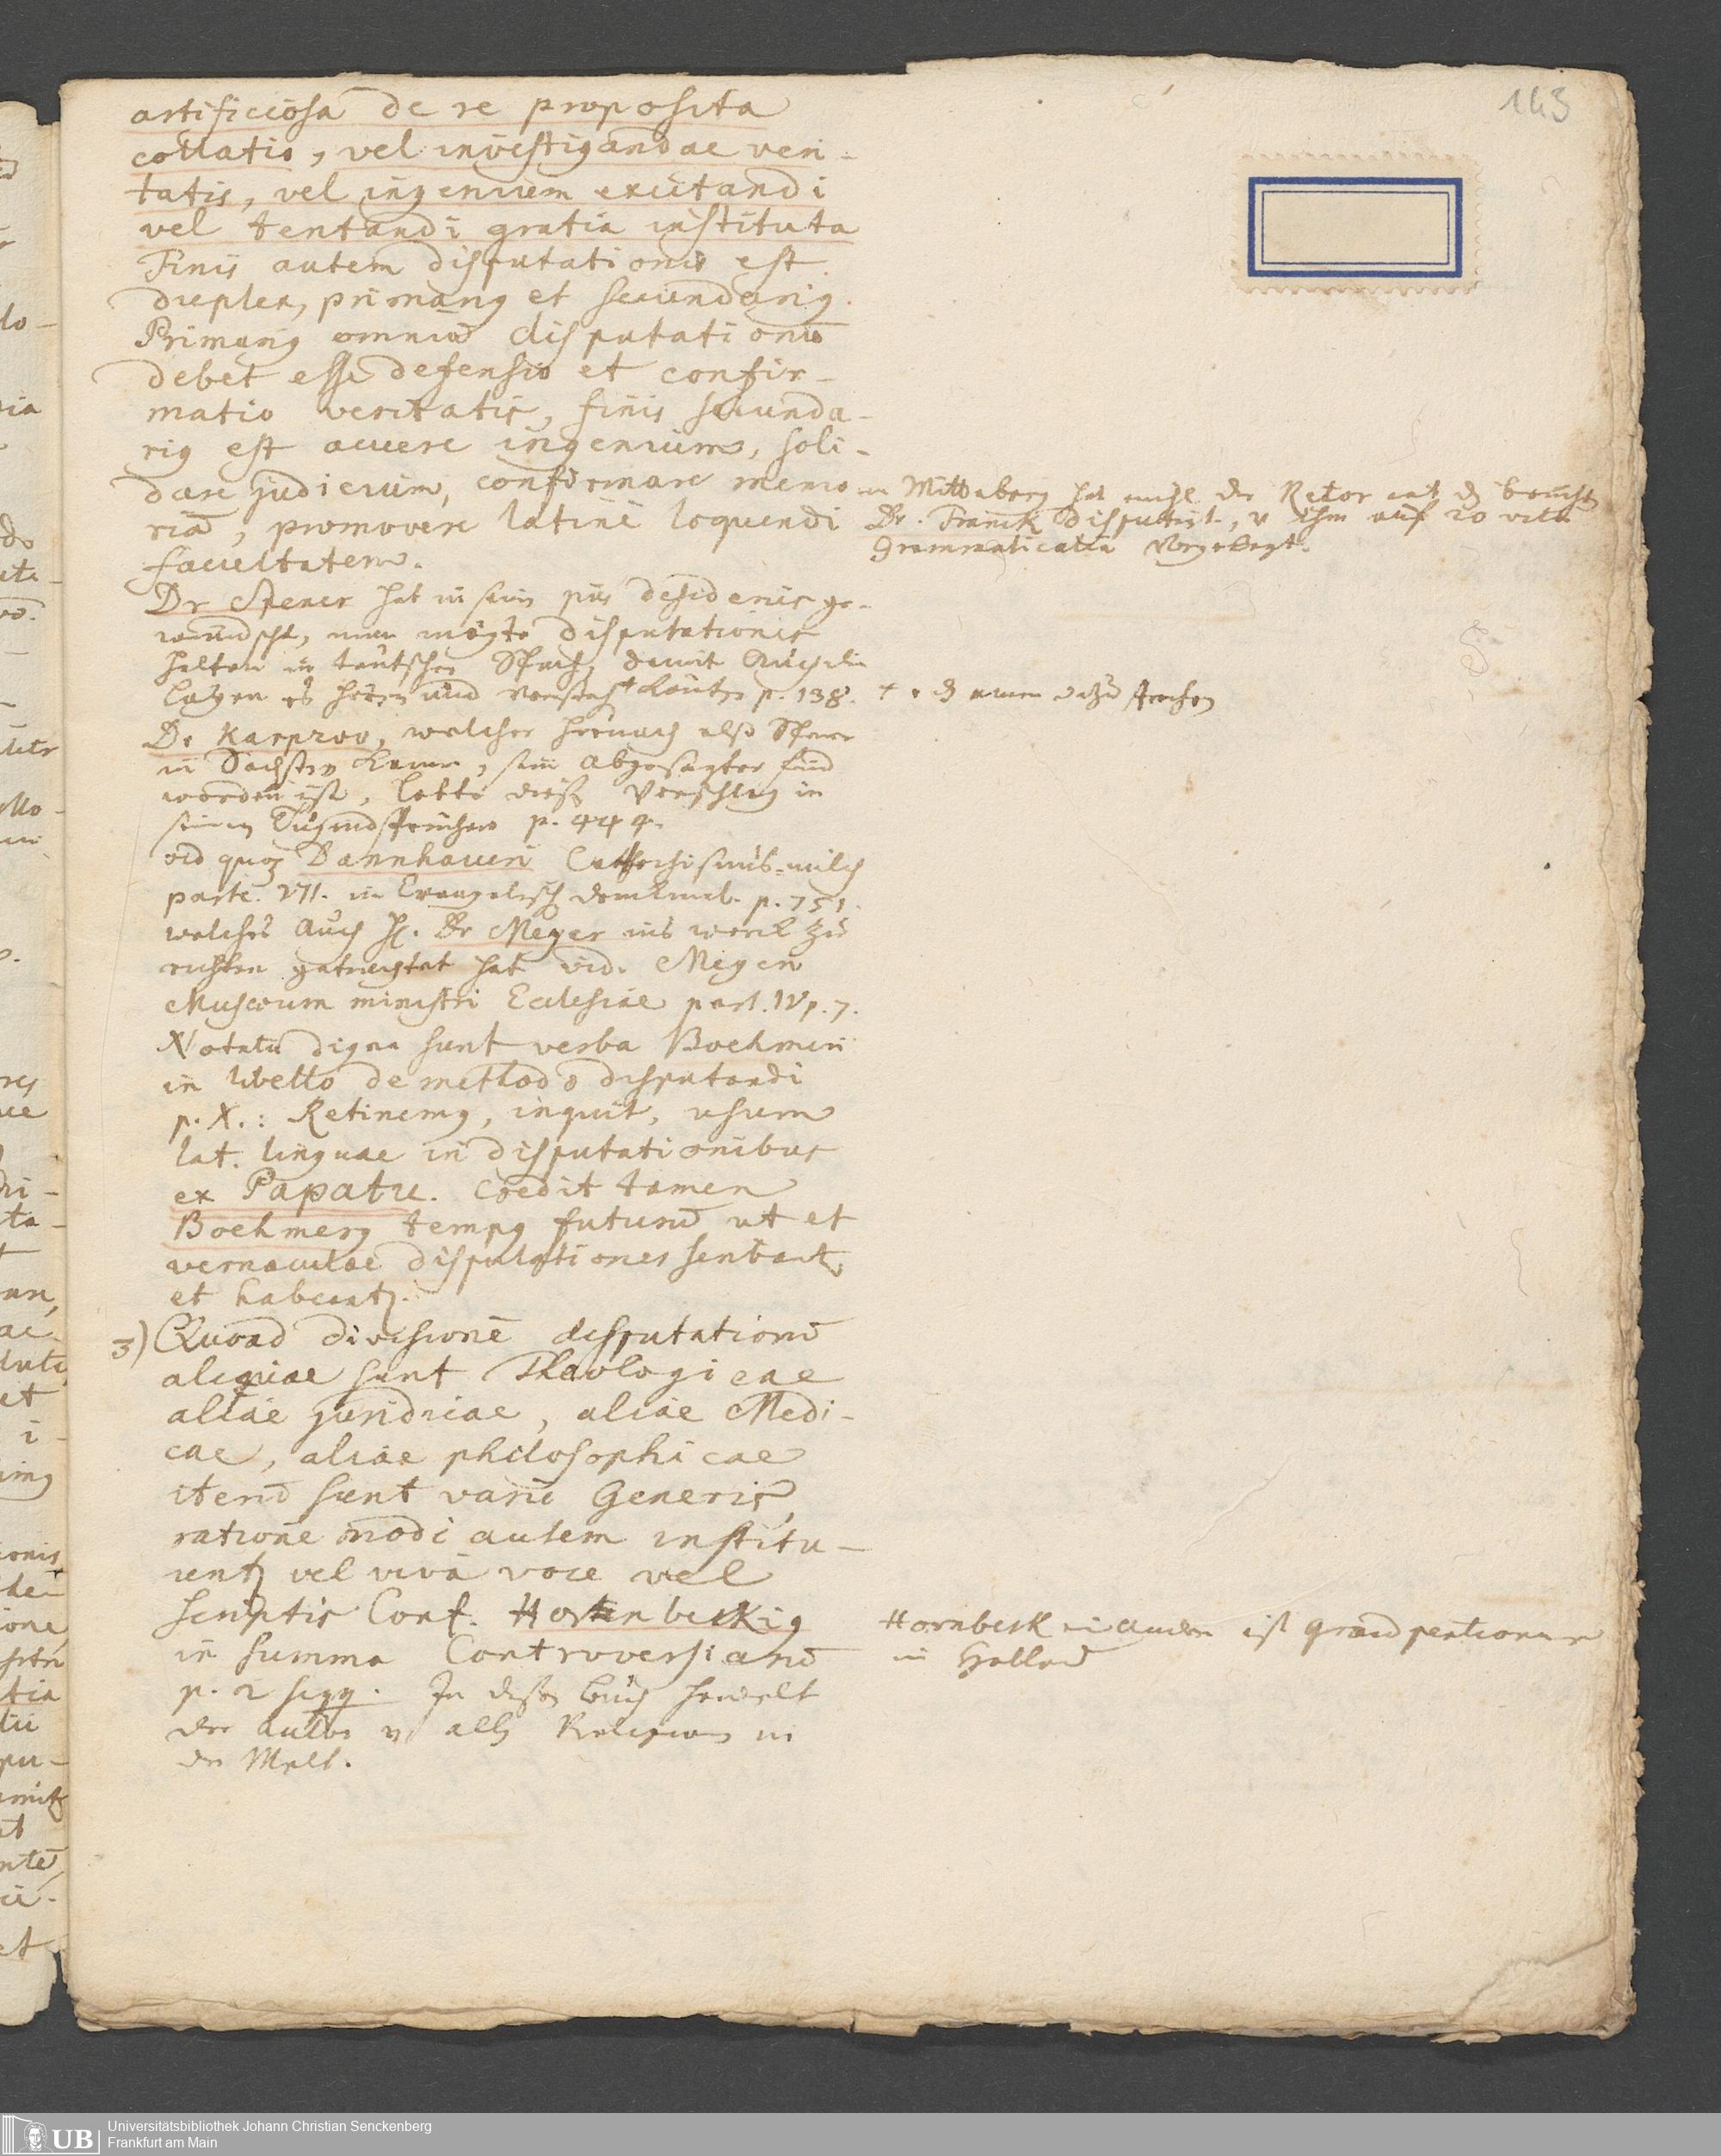 143
artificiosa de re proposita
collatio, vel investigandae veri-
tatis, vel ingenium excitandi
vel tentandi gratia instituta
Finis autem disputationis est
duplex, primariꝰ et secundariꝰ.
Primariꝰ omniū disputationū
debet esse defensio et confir-
matio veritatis, finis secunda-
riꝰ est acuere ingenium, soli-
dare judicium, confirmare memo
riā, promovere latinè loquendi
facultatem.
Dr Spener hat in sein piis desideriis ge-
wündscht, man mögte disputationes
halten in teutscher Sprach, damit
es hören und p. 138.
Dr Karpzov, welcher hernach alß Spener
in Sachsen kam, sein abgesagter feind
worden ist, lobte diesen Vorschlag in
seinen Tugendsprüchen p. 444.
vid quoqꝫ Dannhaueri Catechismus-milch
parte. VII. in Evangelisch denckmal. p. 751.
welches auch H. Dr Meyer ins werck zu
richten getrachtet hat vid. Meyeri
Museum ministri Ecclesiae part. IV p. 7.
Notatu digna sunt verba Boehmeri
in libello de methodo disputandi
p. X.: Retinemꝰ, inquit, usum
lat. linguae in disputationibus
ex Papatu. Credit tamen
Boehmerꝰ tempꝰ futurū ut et
vernaculae disputationes scribantr
et habeantr.
3) Quoad divisionē disputationū
aliquae sunt Theologicae
aliae juridicae, aliae Medi-
cae, aliae philosophicae
iterū sunt varii Generis,
ratione modi autem institu-
untr vel vivâ voce vel
scriptis Conf. Hornbeckiꝰ
in summa Controversiarū
p. 2 seqq. In diesen buch handelt
der autor v allen Religionen in
der Welt.
Wittenberg hat der Retor mit
Dr. Franck disputirt, v ihm auf 20 vitia
Grammaticalia vorgelegt.
Hornbeck ist grand pentionair
in Holland